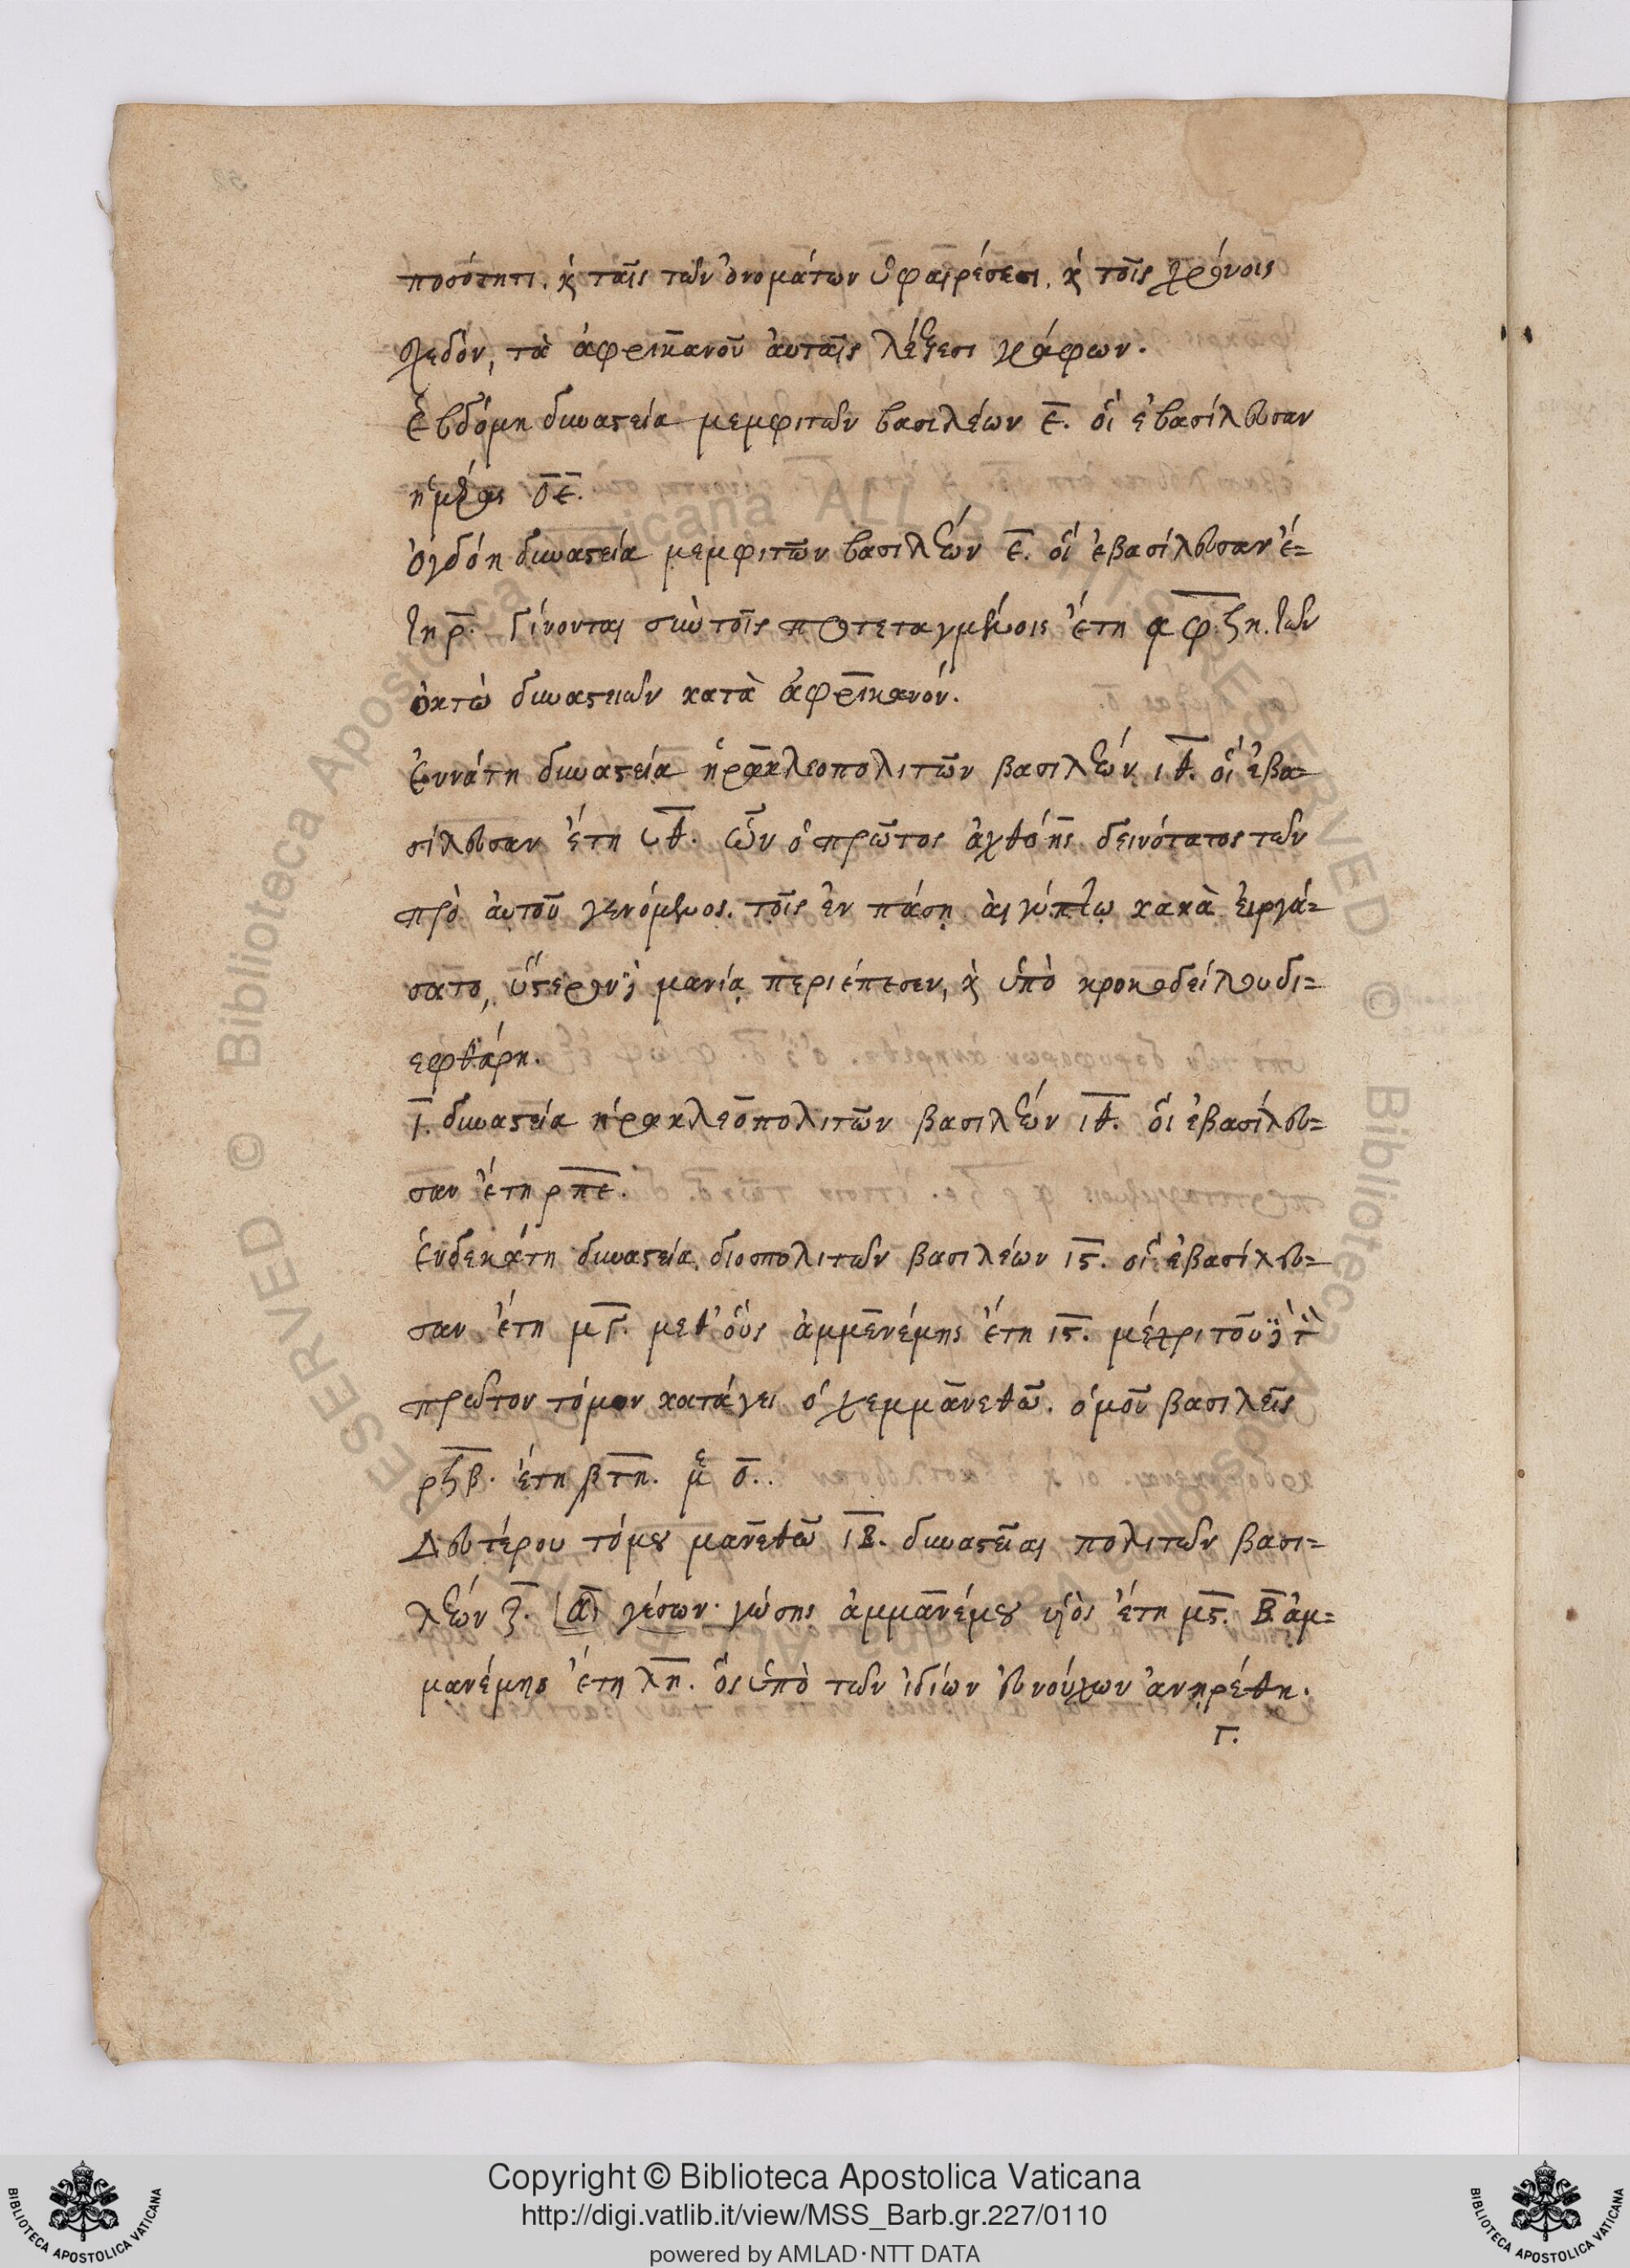 ποσότητι. κ̀ ταῖς τῶν ὀνομάτων ὑφαιρέσεσι, κ̀ τοῖς χρόνοις
σχεδὸν, τὰ ἀφρικανοῦ ἀυταῖς λέξεσι γράφων.
ἑβδόμη δυναστεία μεμφιτῶν βασιλέων ε̅. οἱ ἐβασίλευσαν
ἡμέρας ο̅ε̅.
ὀγδόη δυναστεία μεμφιτῶν βασιλέων ε̅. οἵ ἐβασίλευσαν ἔ=
τη ρ̅. Γίνονται σὺν τοῖς προτεταγμένοις ἔτη α φ̅ ϟη. τῶν
ὀκτὼ δυναστειῶν κατὰ ἀφρικανόν.
ἐννάτη δυναστεία ἡρακλεοπολιτῶν βασιλέων ι̅θ̅. οἵ ἐβα=
σίλευσαν ἔτη υ̅θ̅. ὧν ὁ πρῶτος ἀχθόης δεινότατος τῶν
πρὸ ἀυτοῦ γενόμενος. τοῖς ἐν πάσῃ ἀιγύπτῳ κακὰ ἐιργά=
σατο, ὕστερον δὲ μανίᾳ περιέπεσεν, κ̀ ὑπὸ κροκοδείλου δι=
εφθάρη.
ι̅. δυναστεία ἡρακλεοπολιτῶν βασιλέων ι̅θ̅. οἵ ἐβασίλευ=
σαν ἔτη ρ̅π̅ε̅.
ἑνδεκάτη δυναστεία διοσπολιτῶν βασιλέων ι̅ϛ̅. οἵ ἐβασίλευ=
σαν ἔτη μ̅γ̅. μεθ' οὓς ἀμμενέμης ἔτη ι̅ϛ̅. μέχρι τοῦ δὲ τὸν
πρῶτον τόμον κατάγει ὁ χεμμανεθῶ. ὁμοῦ βασιλεῖς
ρ̅ϟ̅β̅. ἔτη β̅τ̅η̅. ἡμε ο̅..
Δευτέρου τόμου μανεθῶ ι̅β̅. δυναστεῖαι πολιτῶν βασι=
λέων ζ̅. (α̅) γέσων· γώσης ἀμμανέμου υἱὸς ἔτη μ̅ϛ̅. Β̅. ἀμ=
μανέμης ἔτη λ̅η̅. ὃς ὑπὸ τῶν ἰδίων ἐυνούχων ἀνηρέθη.
Γ.
Copyright © Biblioteca Apostolica Vaticana
http://digi.vatlib.it/view/MSS_Barb.gr.227/0110
powered by AMLAD·NTT DATA
BIBLIOTECA APOSTOLICA VATICANA
BIBLIOTECA APOSTOLICA VATICANA